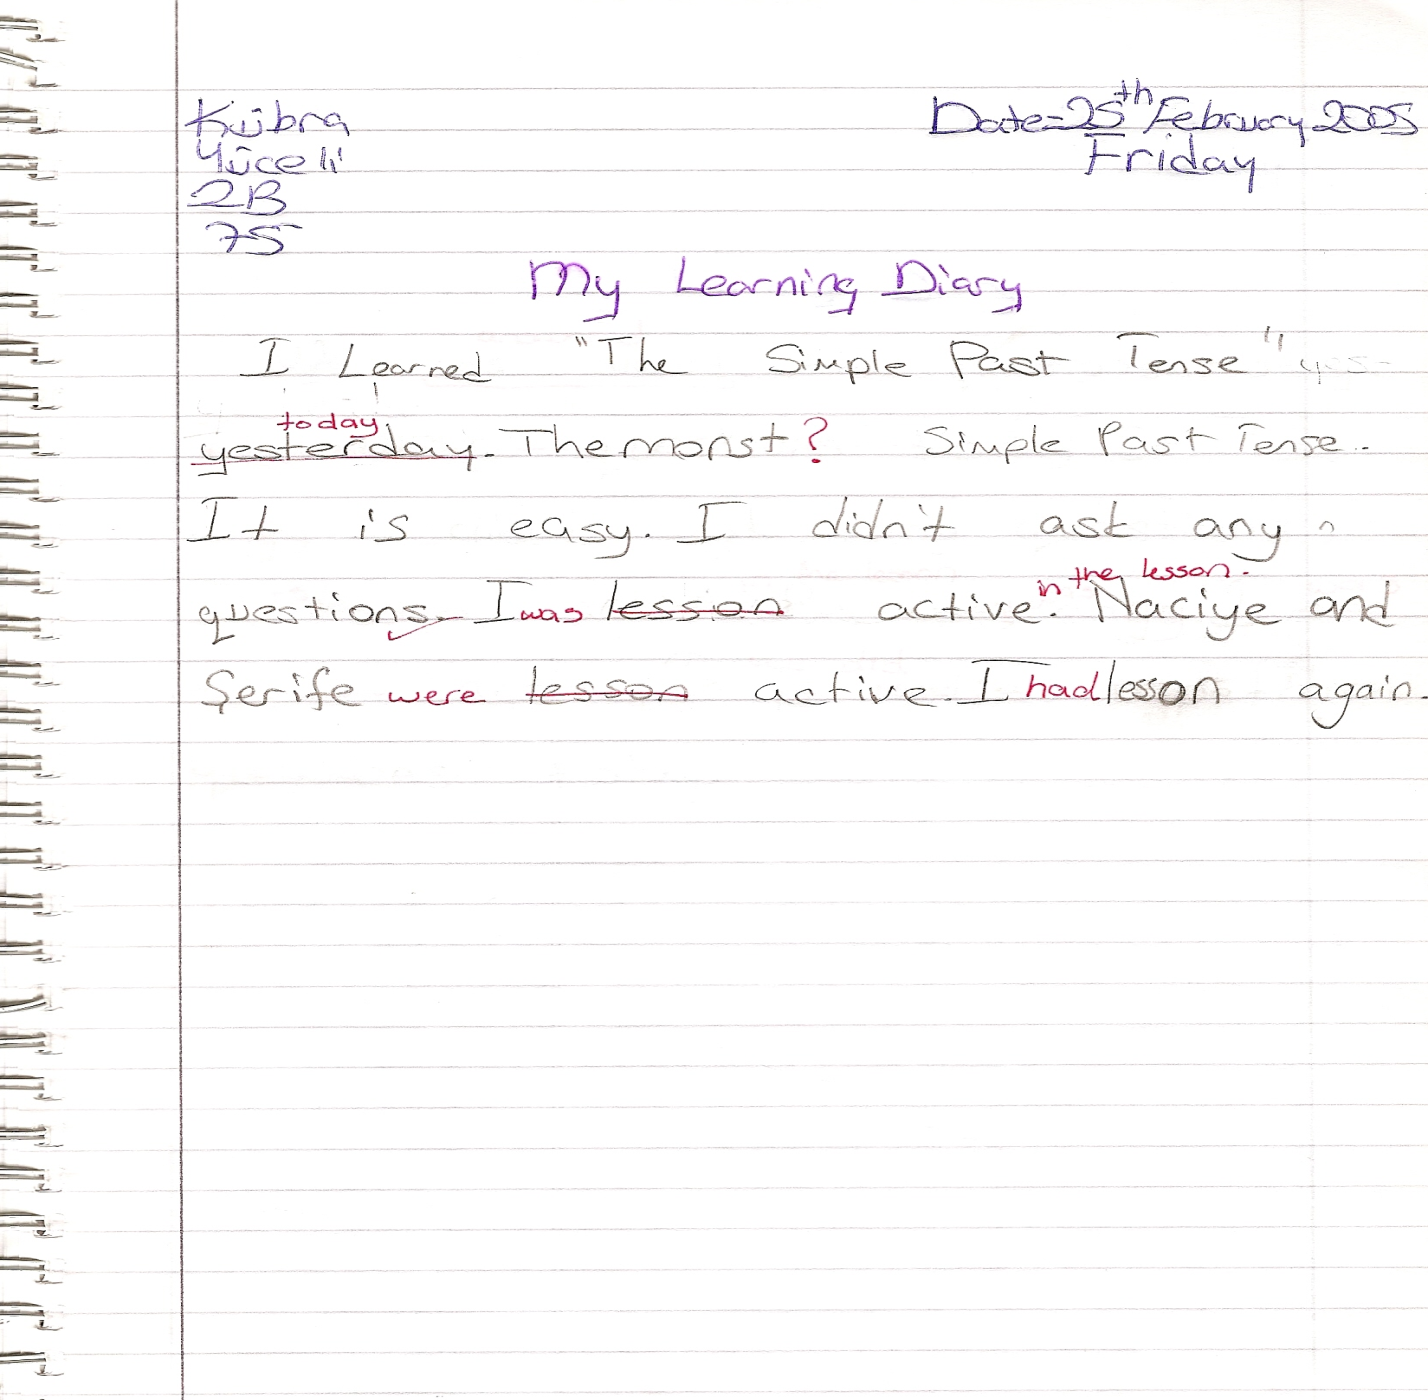 Kübra
Date=25th February 2005
Yüceli
Friday
2B
75
My Learning Diary
I Learned "The Simple Past Tense"
today
yesterday. The monst? Simple Past Tense.
It is easy. I didn't ask any
in the lesson.
questions. I was lesson active. Naciye and
Şerife were lesson active. I had lesson again.